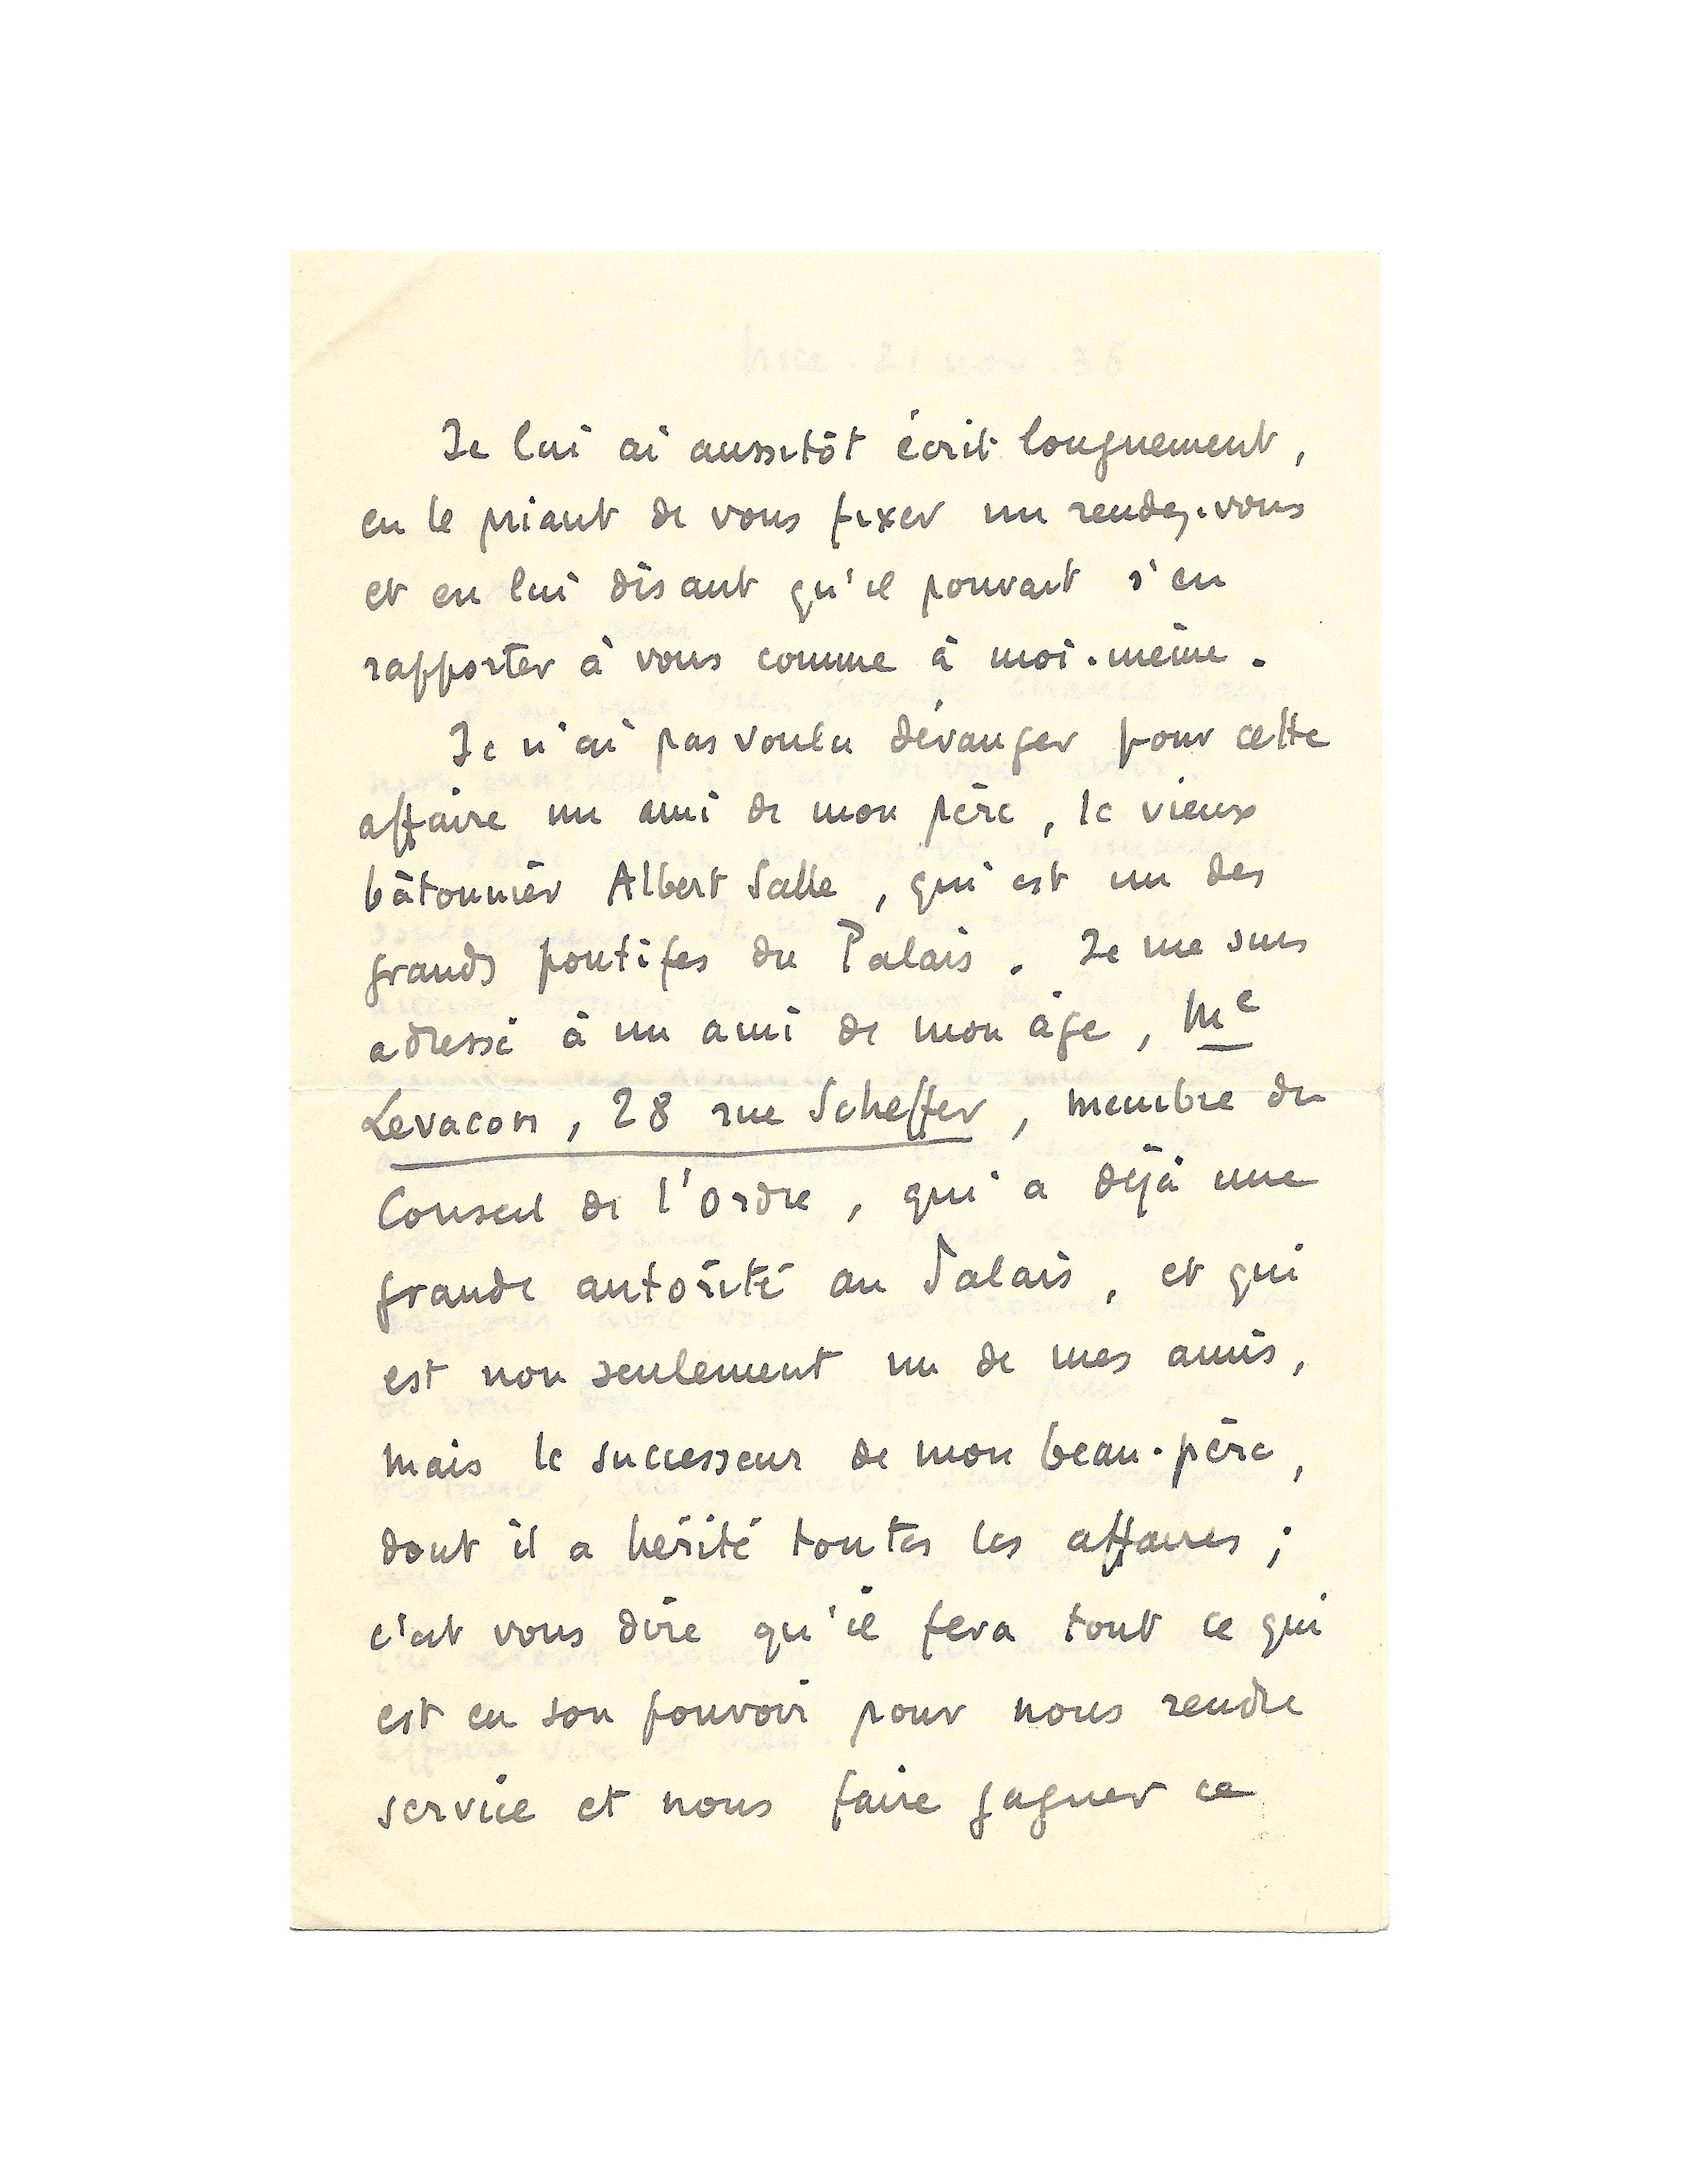 Je lui ai aussitôt écrit longuement,
en le priant de vous fixer un rendez-vous
et en lui disant qu'il pouvait s'en
rapporter à vous comme à moi-même.
Je n'ai pas voulu déranger pour cette
affaire un ami de mon père, le vieux
bâtonnier Albert Salle, qui est un des
grands pontifes du Palais. Je me suis
adressé à un ami de mon âge, Me
Levacon, 28 rue Scheffer, membre du
Conseil de l'Ordre, qui a déjà une
grande autorité au Palais, et qui
est non seulement un de mes amis,
mais le successeur de mon beau-père,
dont il a hérité toutes les affaires ;
c'est vous dire qu'il fera tout ce qui
est en son pouvoir pour nous rendre
service et nous faire gagner ce